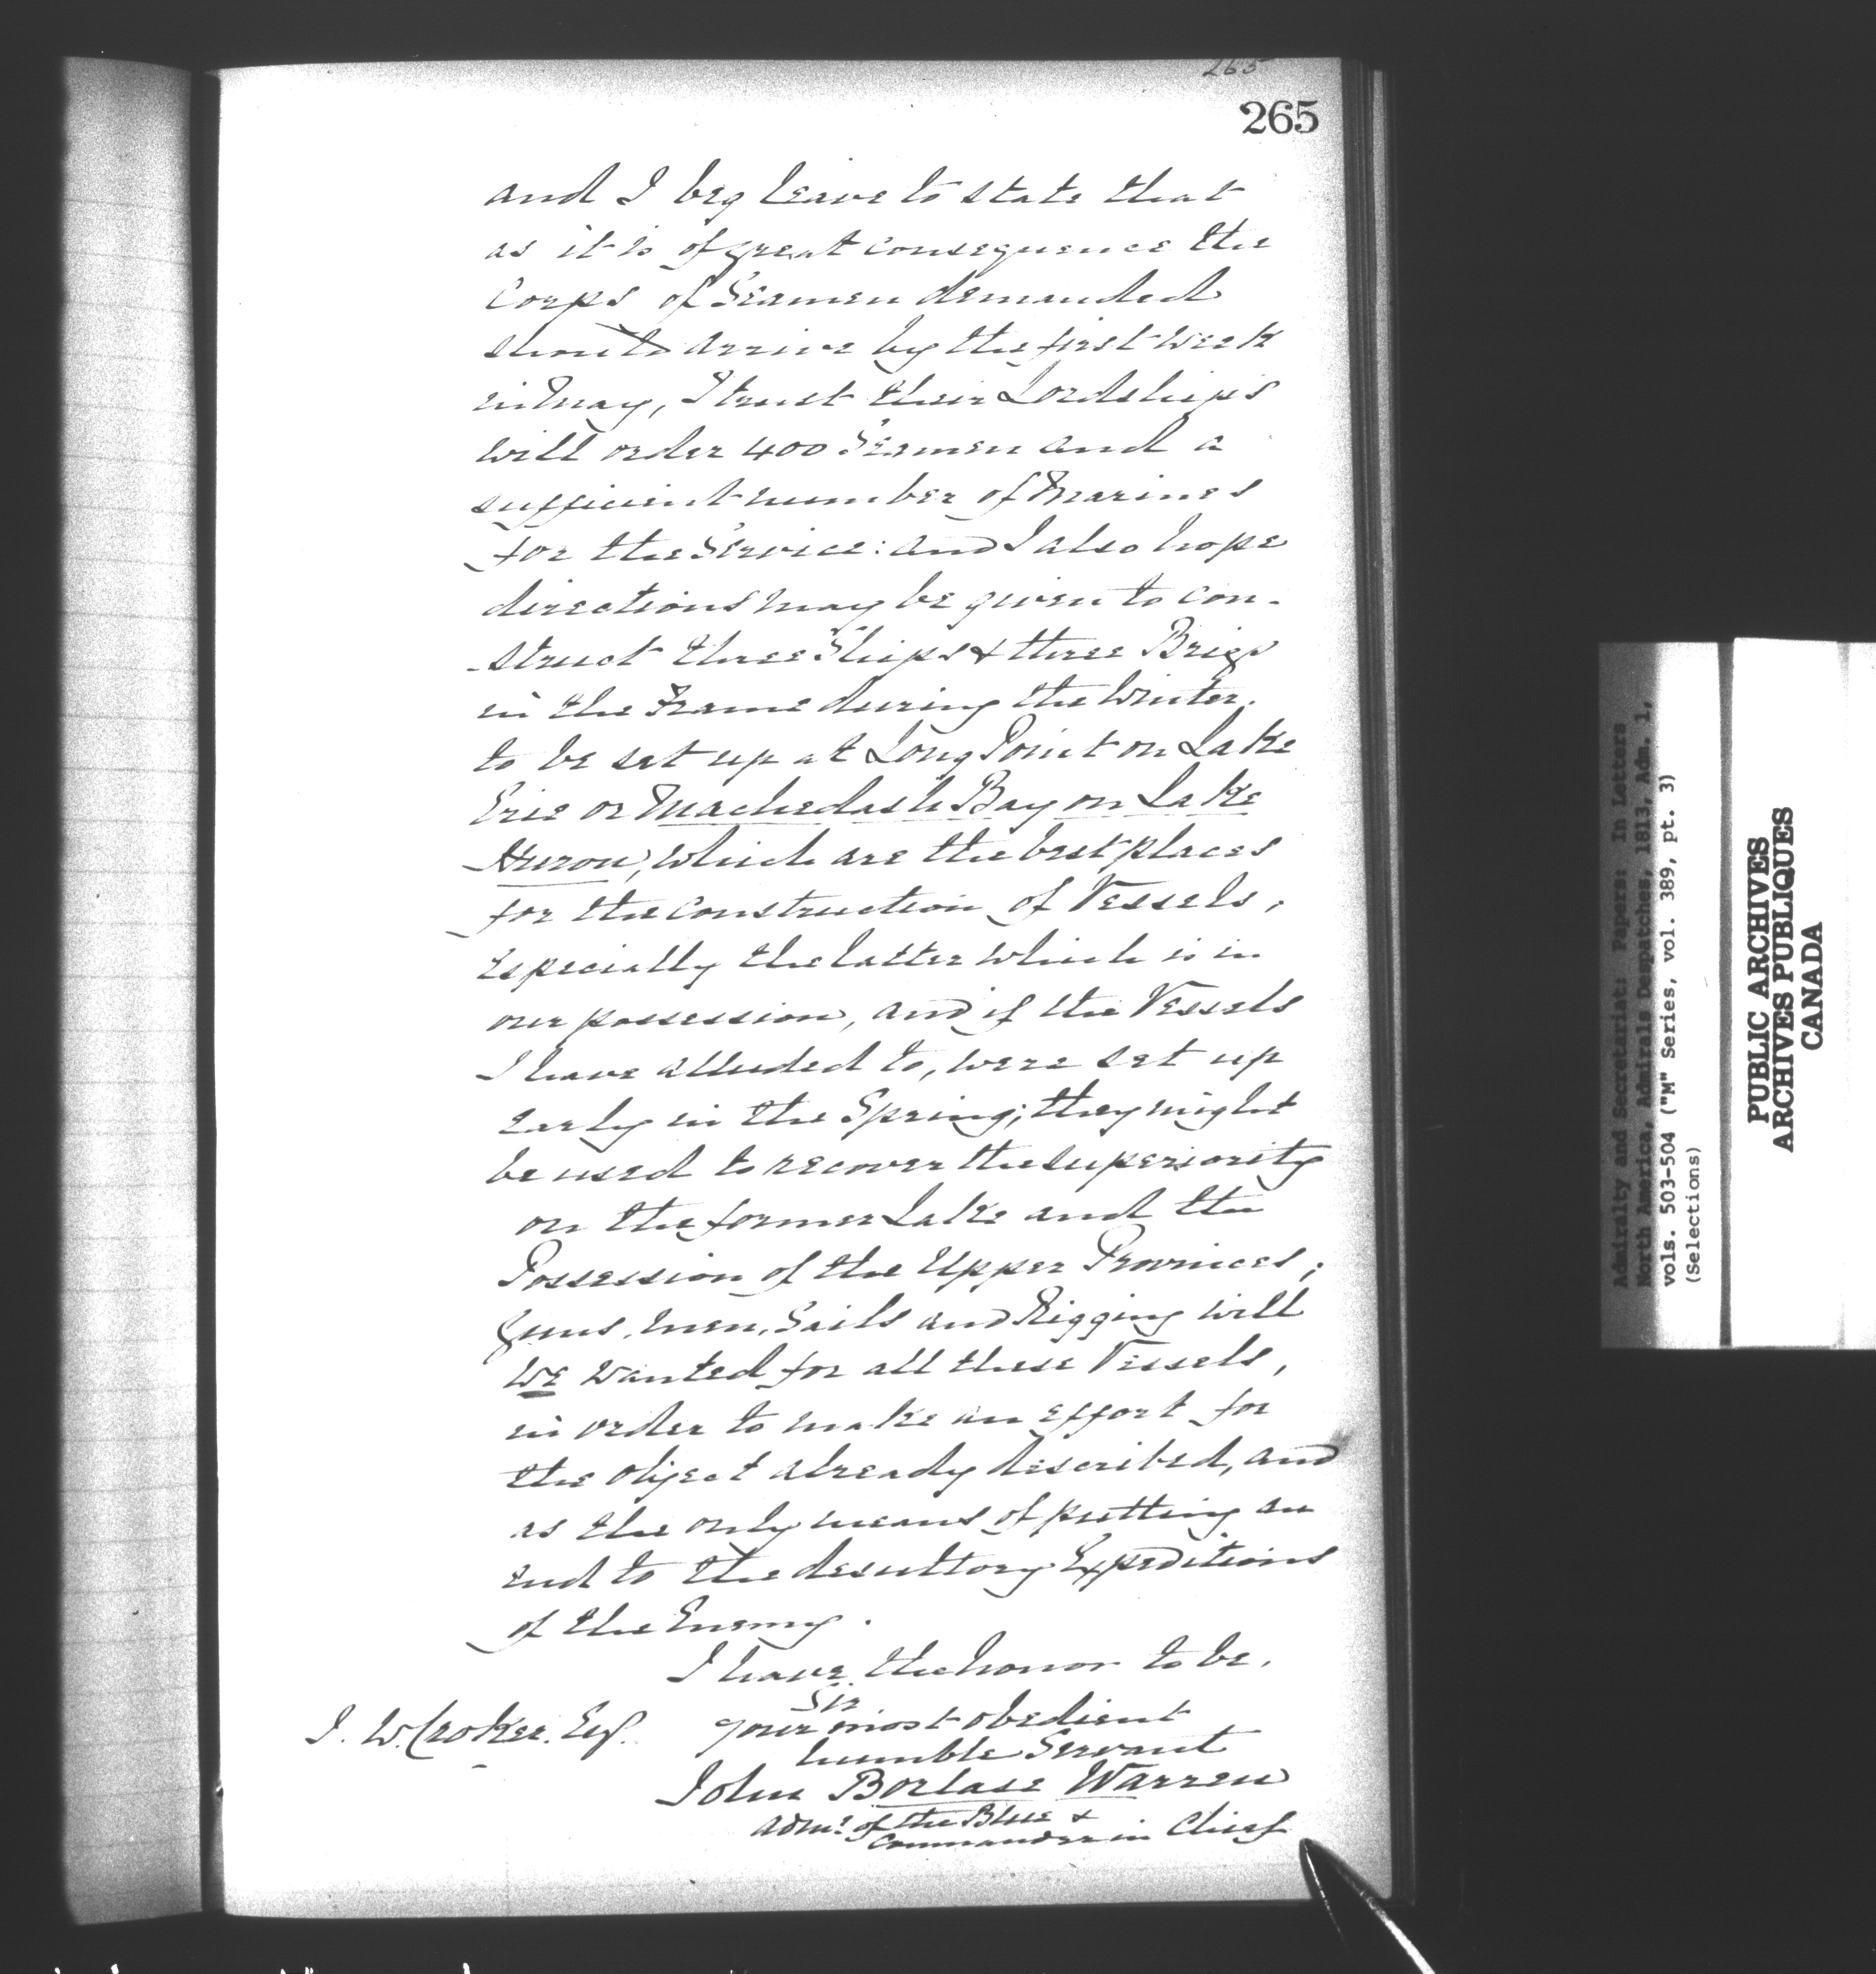 265
265
and I beg leave to state that
as it is of great consequence the
Corps of Seamen demanded
should arrive by the first week
in May, I trust their Lordships
will order 400 Seamen and a
sufficient number of Marines
for the Service: and I also hope
directions may be given to con-
-struct three Ships & three Brigs
in the Frame during the Winter,
to be set up at Long Point on Lake
Erie or Machedash Bay on Lake
Huron, which are the best places
for the construction of Vessels,
especially the latter which is in
our possession, and if the Vessels
I have alluded to, were set up
early in the Spring; they might
be used to recover the superiority
on the former Lake and the
Possession of the Upper Provinces;
Guns, Men, Sails and Rigging will
we wanted for all these Vessels,
in order to make an effort for
the object already described, and
as the only means of putting an
end to the desultory Expeditions
of the Enemy.
I have the honor to be,
Sir
your most obedient
humble Servant
John Borlase Warren
Adml. of the Blue &
Commander in Chief
J. W. Croker. Esq.
Admiralty and Secretariat: Papers: In Letters
North America, Admirals Despatches, 1813, Adm. 1,
vols. 503-504 ("M" Series, vol. 389, pt. 3)
(Selections)
PUBLIC ARCHIVES
ARCHIVES PUBLIQUES
CANADA